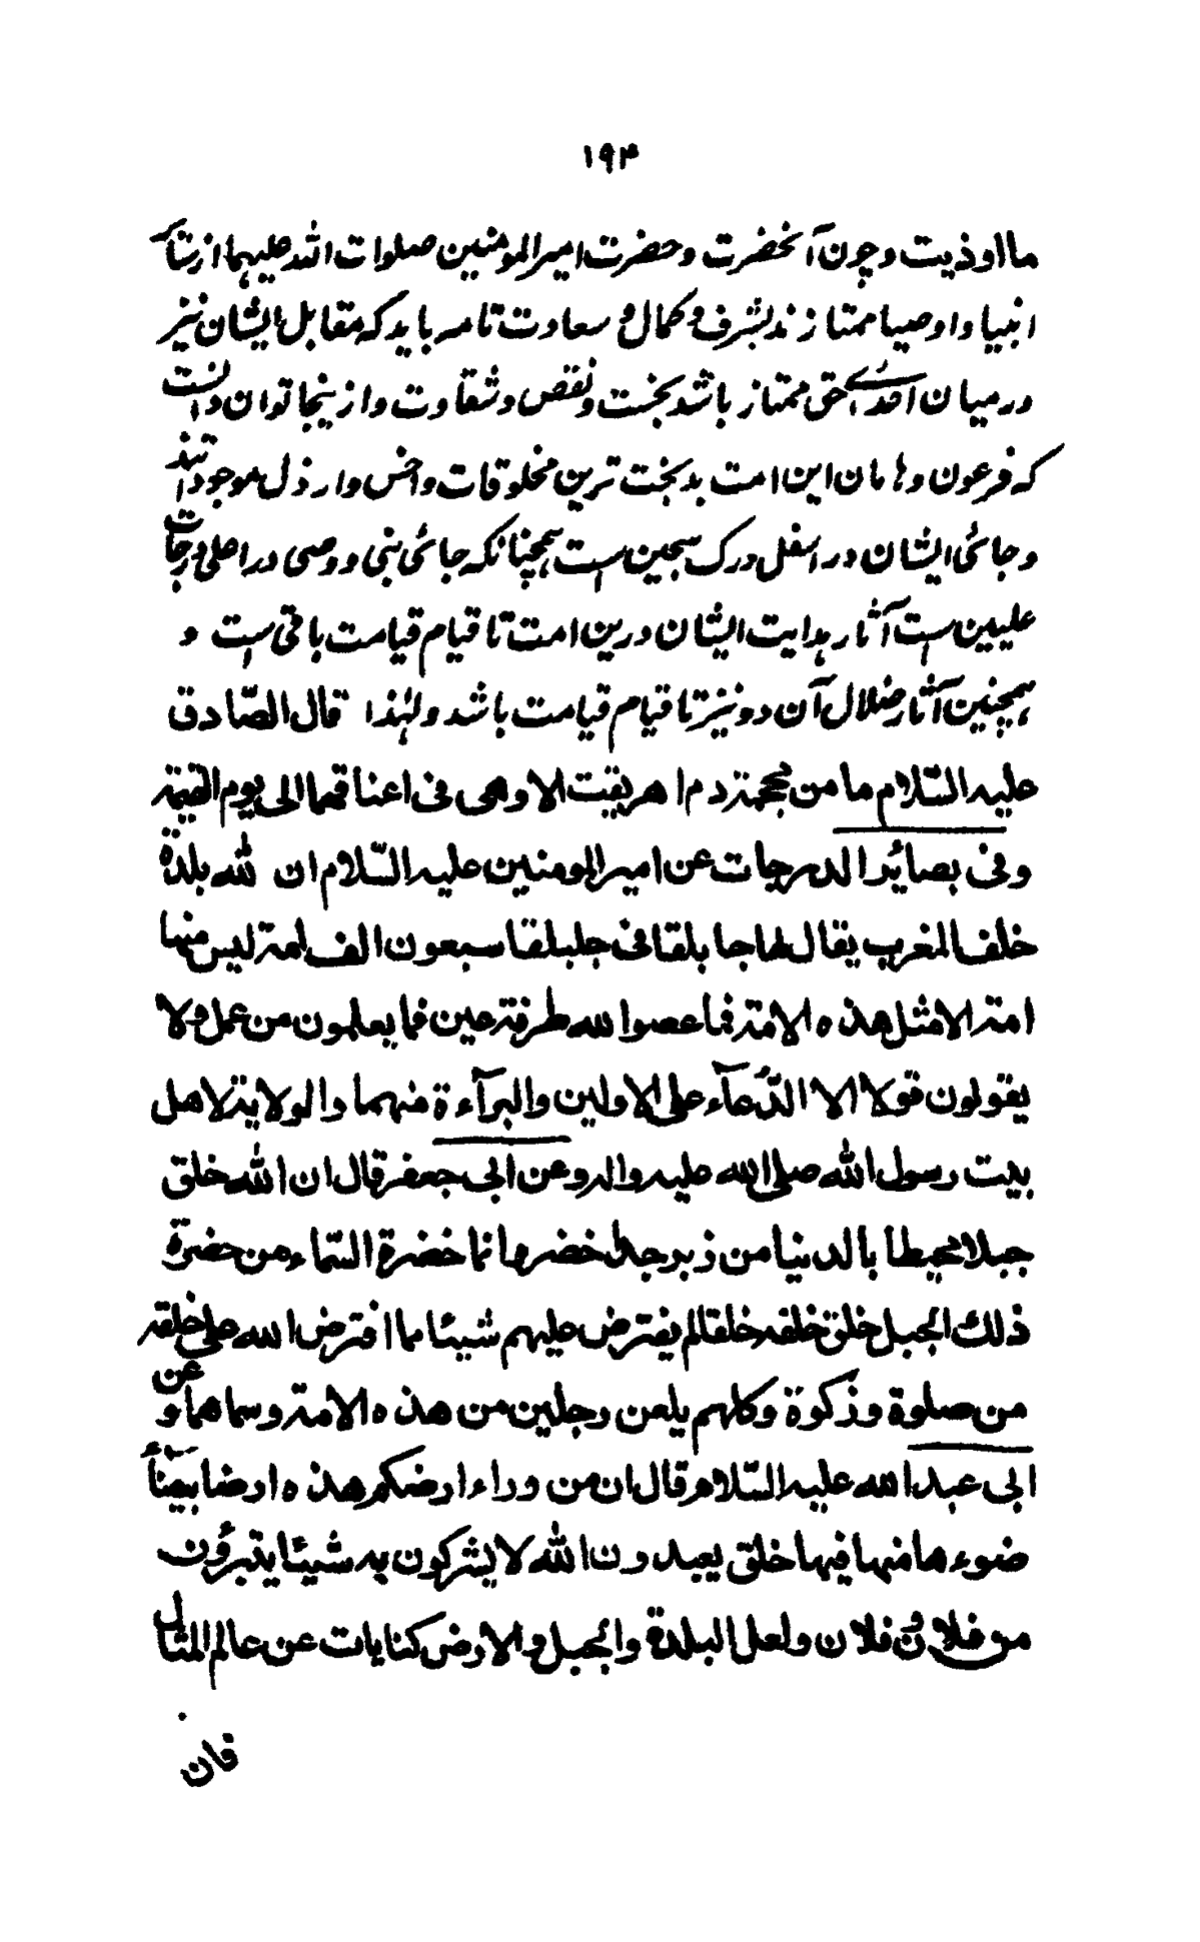 ۱۹۴
ما اوذیت و چون آنحضرت و حضرت امیرالمومنین صلوات الله علیهما از سائر
انبیا و اوصیا ممتازند بشرف و کمال و سعادت تامه باید که مقابل ایشان نیز
در میان اعدای حق ممتاز باشد بخست و نقص و شقاوت و ازینجا توان دانست
که فرعون و هامان این امت بدبخت ترین مخلوقات و اخس و ارذل موجوداتند
و جائی ایشان در اسفل درک سجین ست همچنانکه جائی نبی و وصی در اعلی درجات
علیین ست آثار هدایت ایشان درین امت تا قیام قیامت باقی ست و
همچنین آثار ضلال آن دو نیز تا قیام قیامت باشد ولهذا قال الصّادق
علیه السّلام ما من محجمة دم اهریقت الا وهی فی اعناقهما الی یوم القیمة
وفی بصائر الدرجات عن امیرالمومنین علیه السّلام ان لله بلدة
خلف المغرب یقال لها جابلقا فی جابلقا سبعون الف امة لیس منها
امة الا مثل هذه الامة فما عصوا الله طرفة عین فما یعلمون من عمل ولا
یقولون قولا الا الدّعآء علی الاولین والبرآءة منهما والولایة لاهل
بیت رسول الله صلی الله علیه واله وعن ابی جعفر قال ان الله خلق
جبلا محیطا بالدنیا من زبرجد اخضر وانما خضرة السّماء من خضرة
ذلك الجبل خلق خلفه خلقا لم یفترض علیهم شیئا مما افترض الله علی خلقه
من صلوة وزکوة وکلهم یلعن رجلین من هذه الامة وسماهما وعن
ابی عبد الله علیه السّلام قال ان من وراء ارضکم هذه ارضا بیضآء
ضوءها منها فیها خلق یعبدون الله لا یشرکون به شیئا یتبرؤن
من فلان وفلان ولعل البلدة والجبل والارض کنایات عن عالم المثال
فان